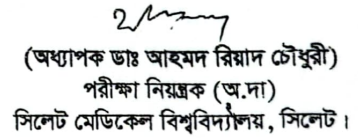 (অধ্যাপক ডাঃ আহমদ রিয়াদ চৌধুরী)
পরীক্ষা নিয়ন্ত্রক (অ.দা)
সিলেট মেডিকেল বিশ্ববিদ্যালয়, সিলেট।